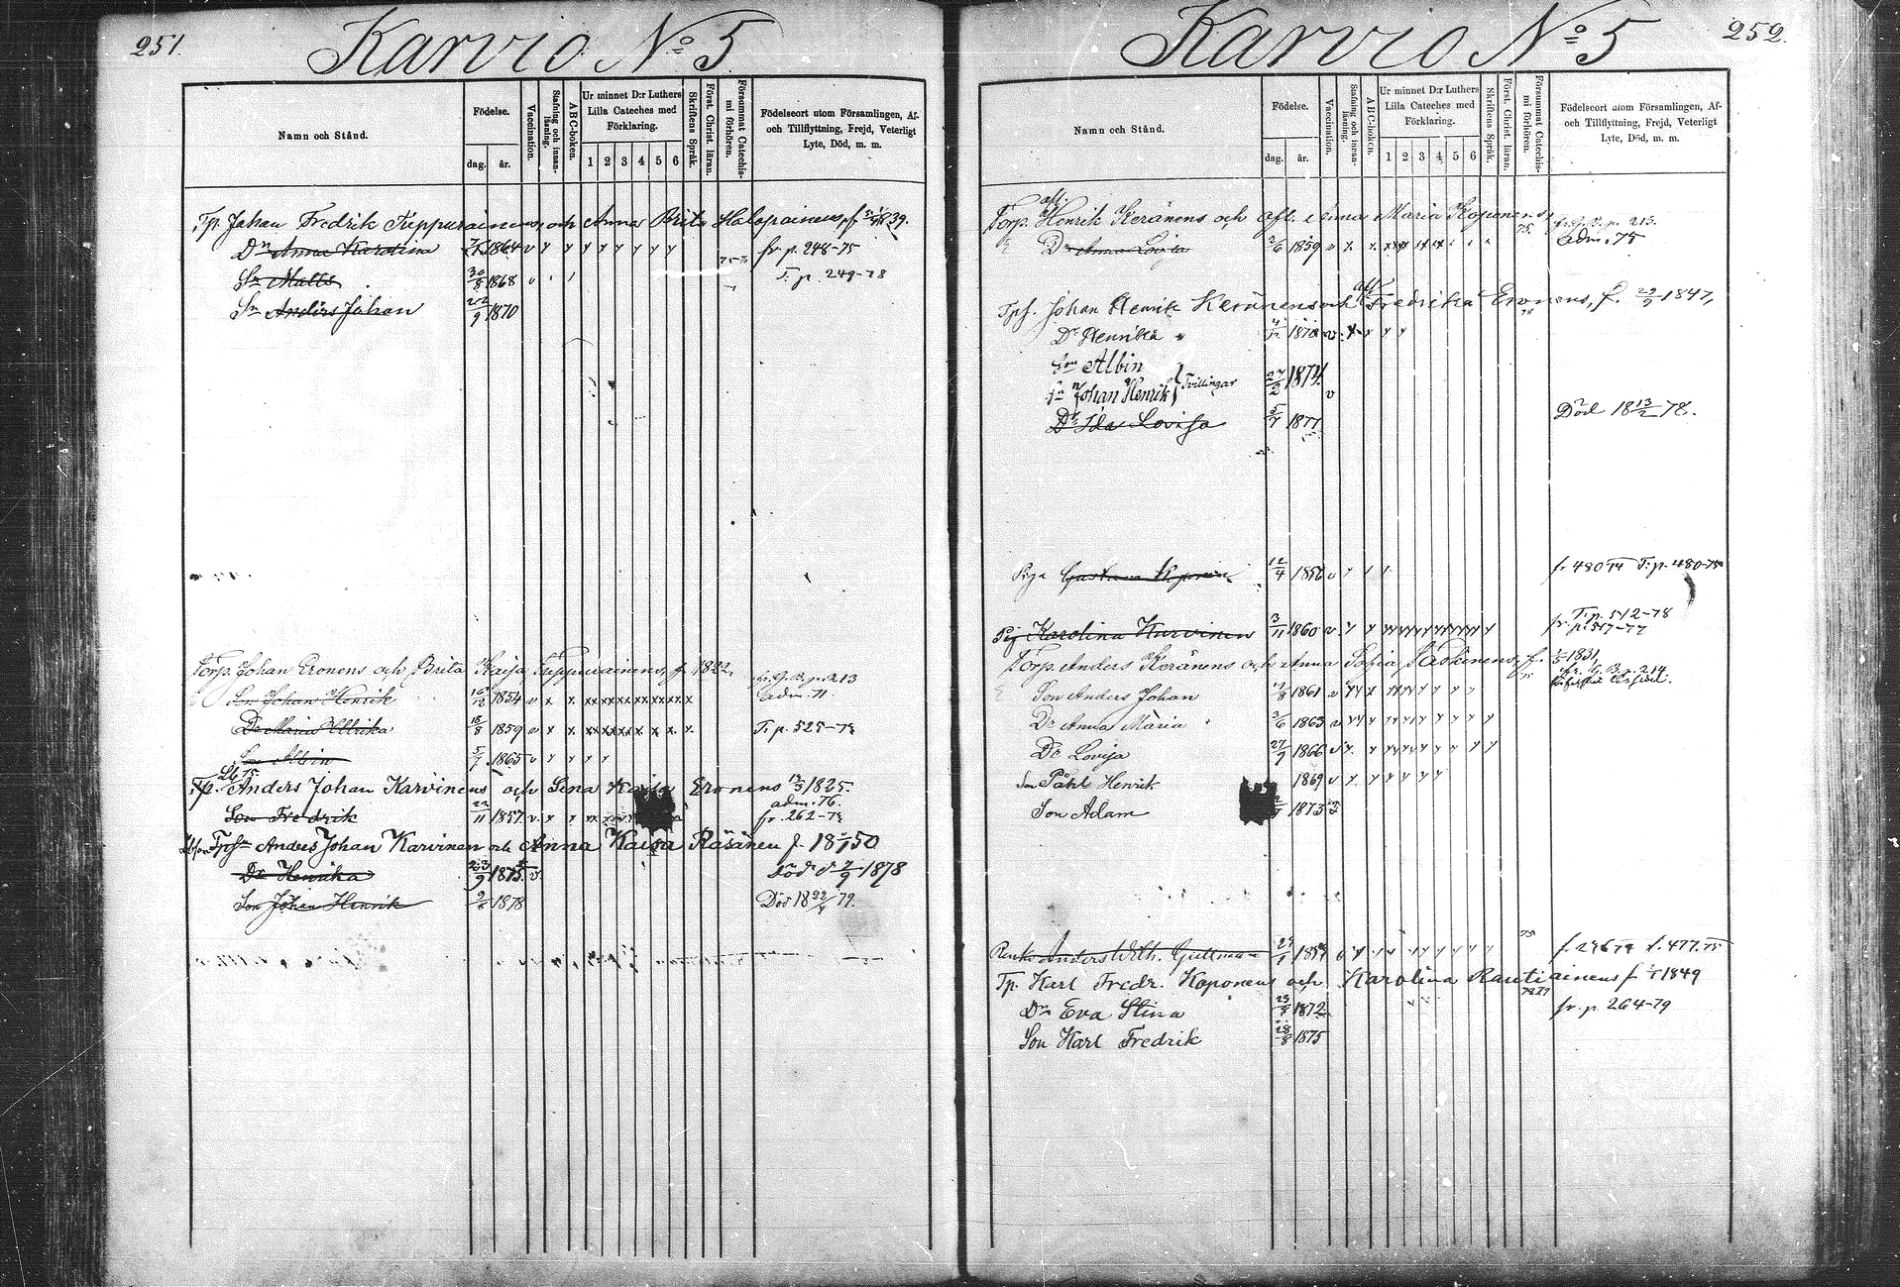 251.
Karvio No 5
Namn och Stånd.
Födelse.
dag.
år.
Vaccination.
Stafning och innan-läsning.
ABC-boken.
Ur minnet D:r Luthers
Lilla Cateches med
Förklaring.
1 2 3 4 5 6
Skriftens Språk.
Först. Christ. läran.
Försummat Catechis-mi förhören.
Födelseort utom Församlingen, Af-
och Tillflyttning, Frejd, Veterligt
Lyte, Död, m. m.
Tp. Johan Fredrik Tuppurainens och Anna Brita Halopainens, f. 39.
Dr Anna Karolina 1864 v fr p. 248-75
Sn Matts 30/8 1868 v T. p. 249-78
Sn Anders Johan 22/9 1870
Torp. Johan Eronens och Brita Kaisa Tuppurainens, f. 1822, p. 213
Son Johan Henrik 16/12 1854 v adm. 71.
Dr Maria Ullrika 18/8 1859 v T. p. 525-78
Son Albin 5/7 1865 v
Tp. Anders Johan Karvinens och Lena Kaisa Eronens 1825.
adm. 76.
Son Fredrik 22/11 1857 v. fr. 262-78
Anders Johan Karvinen och Anna Kaisa Räsänen f. 1850
Dr Henrika 23/9 1875 v. död d. 7/9 1878
Son Johan Henrik 1878 Död 18 22/4 79.
252.
Karvio No 5
Namn och Stånd.
Födelse.
dag.
år.
Vaccination.
Stafning och innan-läsning.
ABC-boken.
Ur minnet D:r Luthers
Lilla Cateches med
Förklaring.
1 2 3 4 5 6
Skriftens Språk.
Först. Christ. läran.
Försummat Catechis-mi förhören.
Födelseort utom Församlingen, Af-
och Tillflyttning, Frejd, Veterligt
Lyte, Död, m. m.
afl.
Torp. Henrik Keränens och afl. Anna Maria Koponens, p. 213.
Dr Anna Lovisa 2/6 1859 v adm. 75
afl.
Tpf. Johan Henrik Keränens och Fredrika Eronens, f. 29/9 1847,
Dr Henrika v
Son Albin
Sn Johan Henrik } Tvillingar 27/2 1874. v
Dr Ida Lovisa 5/7 1877 Död 18 13/2 78.
Piga Gustava Koponen 12/4 1856 v f. 480-74 T. p. 480-75
T. p. 512-78
Pig Karolina Karvinen 3/11 1860 v. fr. p. 517-77
Torp. Anders Keränens och Anna Sofia Väskinens, f. 1831,
p. 214
Son Anders Johan 1861 v
Dr Anna Maria 3/6 1863 v
Dr Lovisa 27/9 1866 v
Son Påhl Henrik 1869 v
Son Adam 1873
Anders Wilh. Gullman f. 477. 75
Tp. Karl Fredr. Koponens och Karolina Rautiainens f. 1849
Dr Eva Stina 1872 fr. p. 264-79
Son Karl Fredrik 28/8 1875